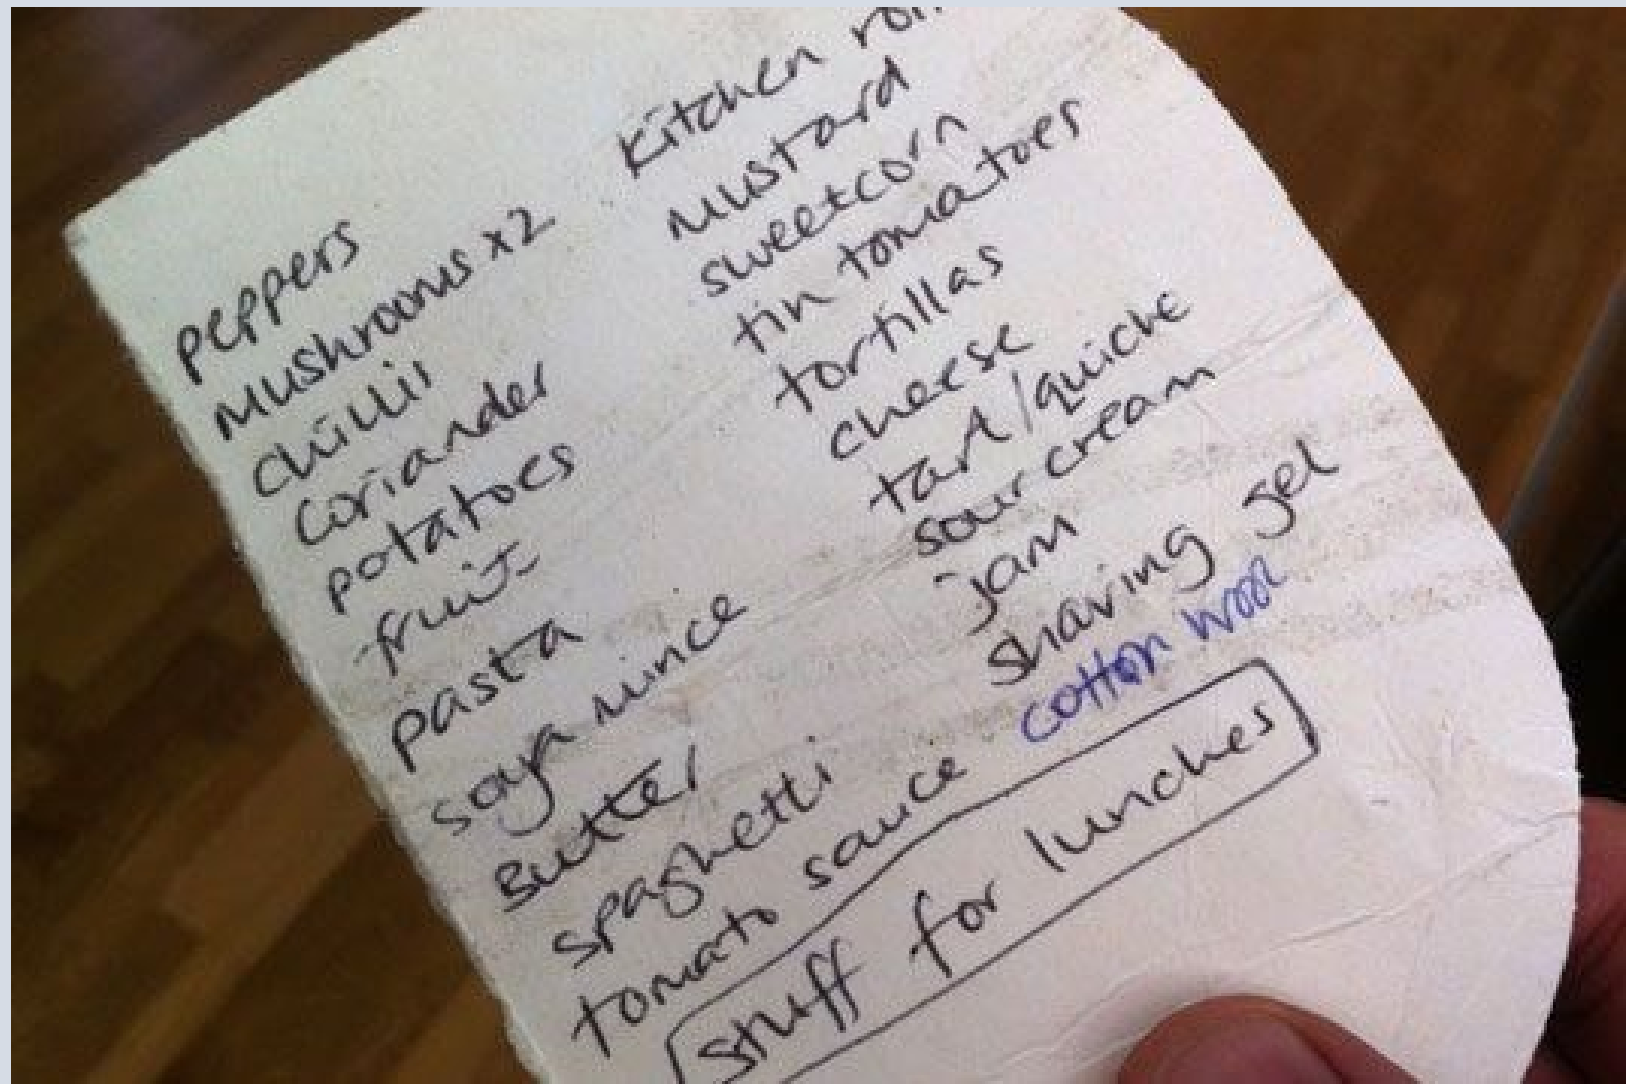 peppers
mushrooms x2
chilli
coriander
potatoes
fruit
pasta
soya mince
Butter
spaghetti
tomato sauce
kitchen roll
mustard
sweetcorn
tin tomatoes
tortillas
cheese
tart/quiche
sour cream
jam
shaving gel
cotton wool
stuff for lunches